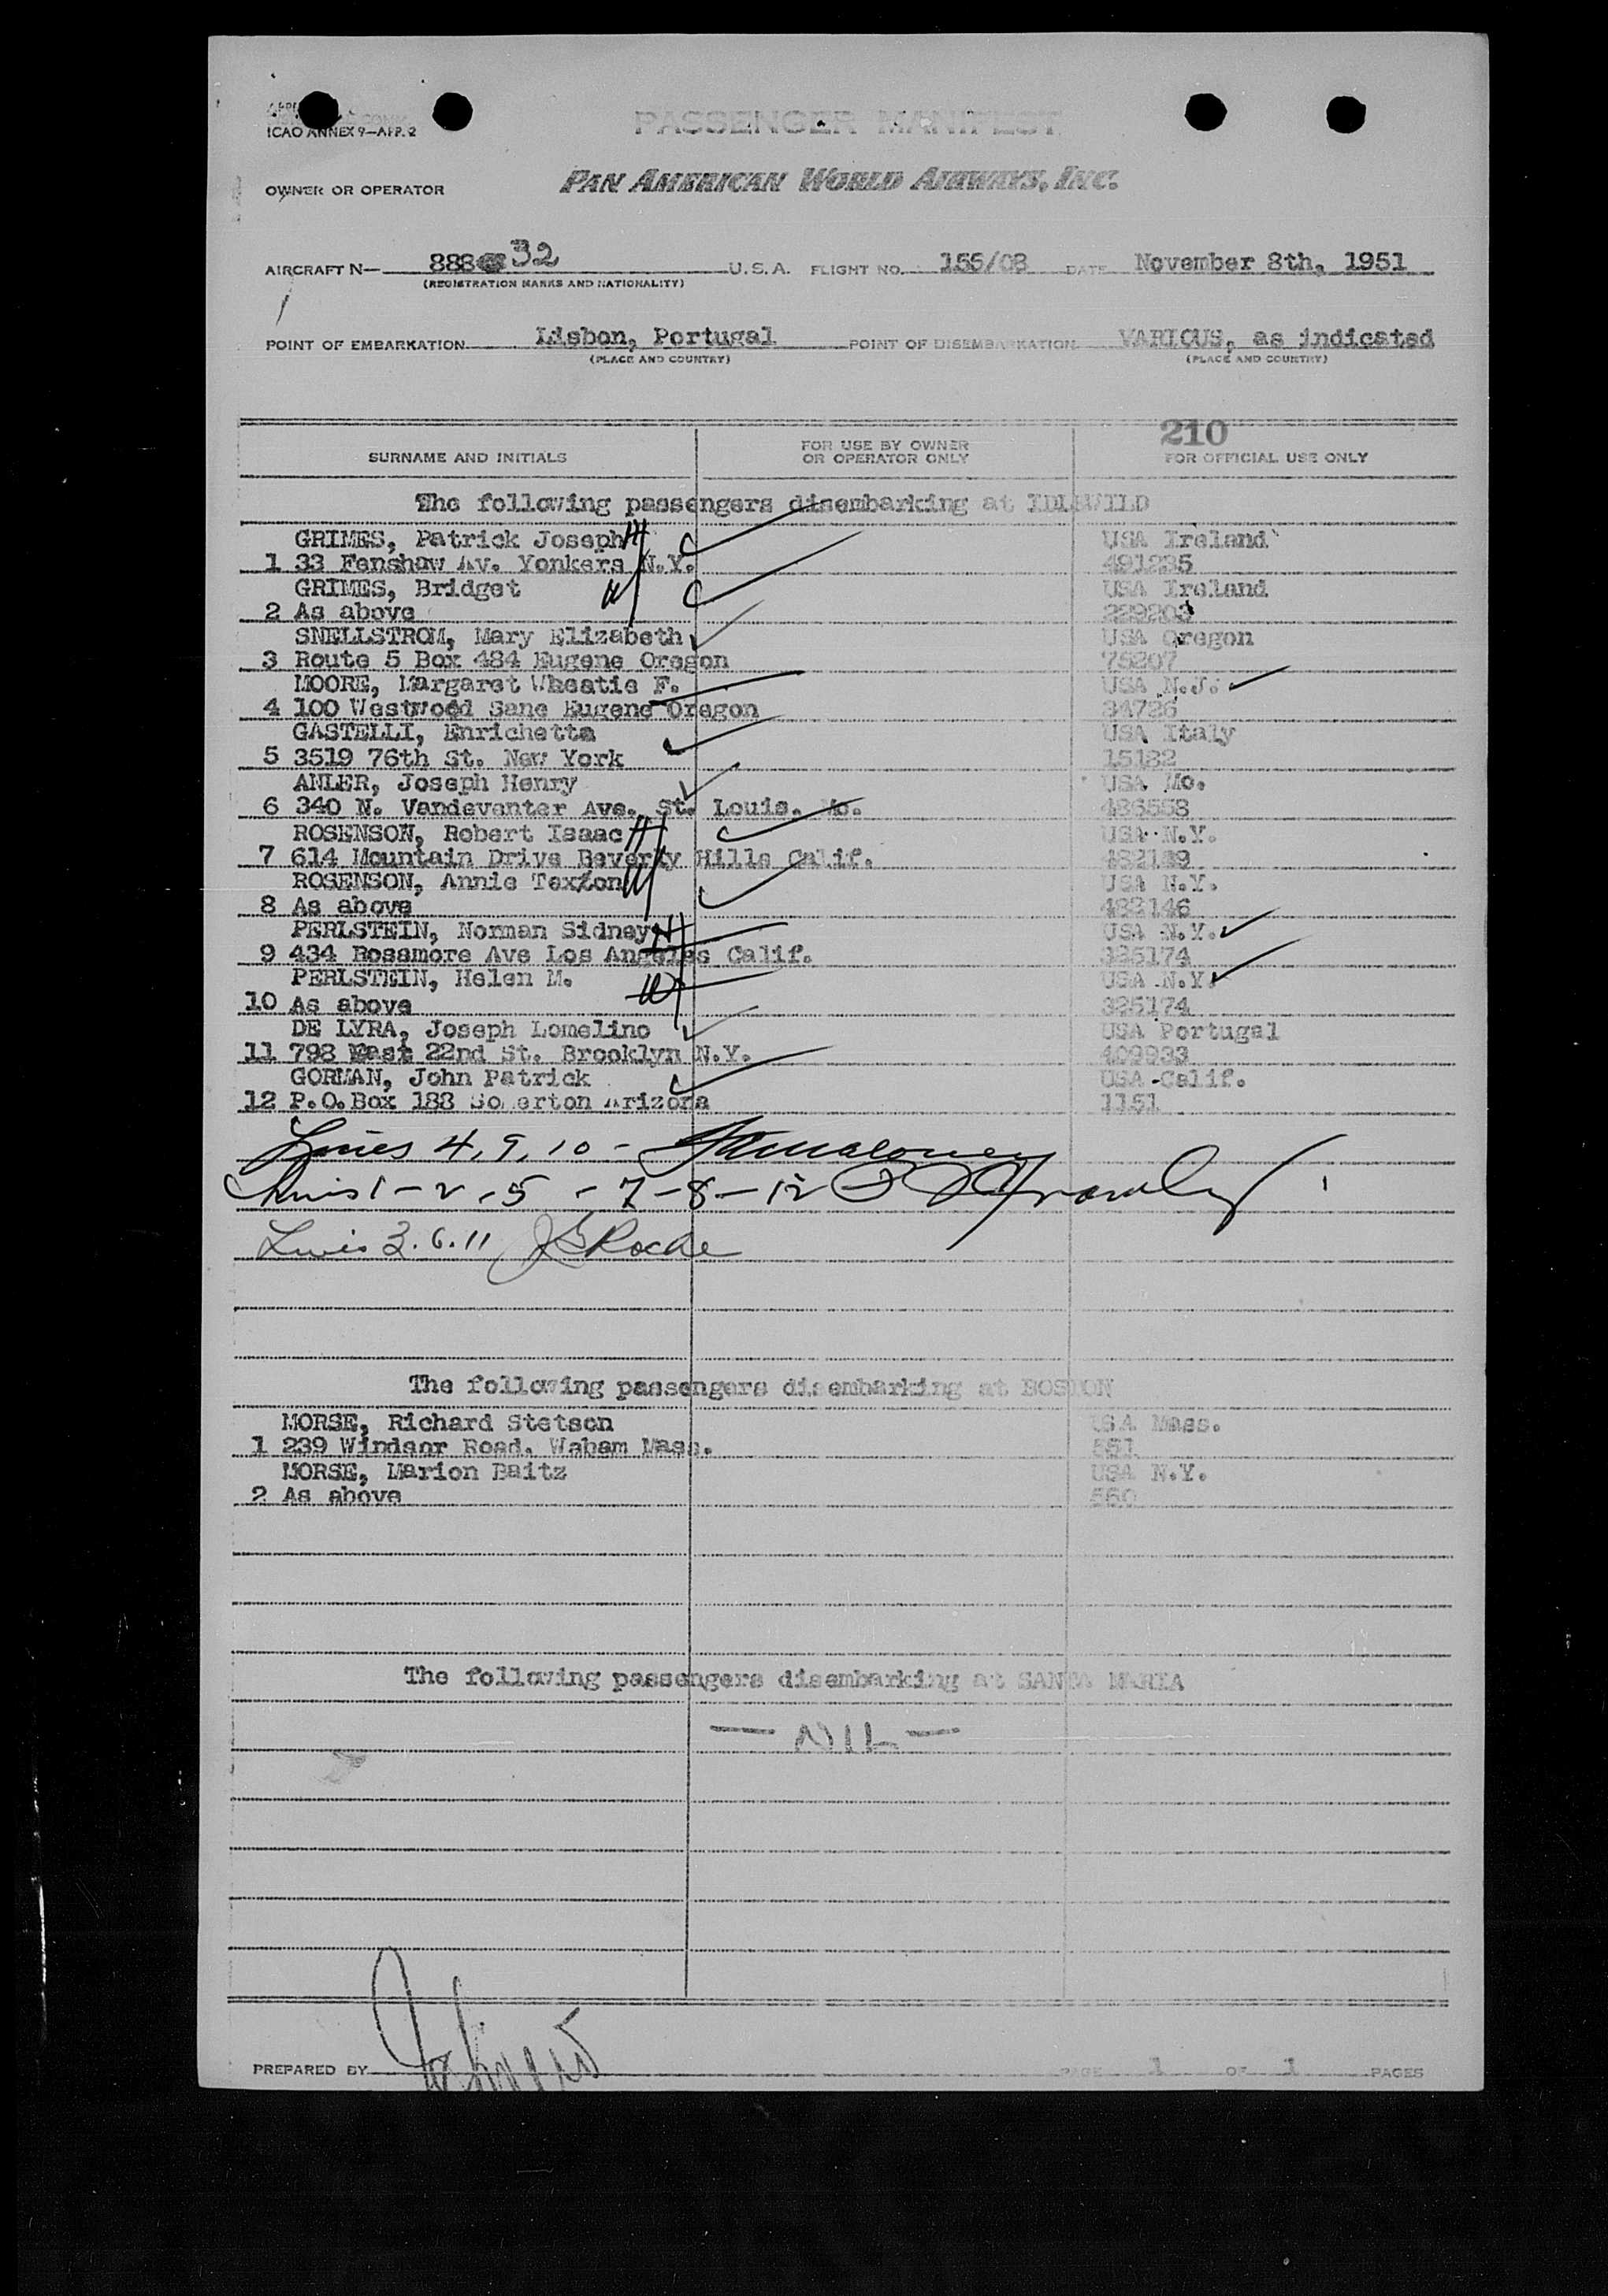 ICAO ANNEX 9—APP. 2
PASSENGER MANIFEST
OWNER OR OPERATOR PAN AMERICAN WORLD AIRWAYS, INC.
AIRCRAFT N— 888 32 U.S.A. FLIGHT NO. 155/08 DATE November 8th, 1951
(REGISTRATION MARKS AND NATIONALITY)
POINT OF EMBARKATION Lisbon, Portugal POINT OF DISEMBARKATION VARIOUS, as indicated
(PLACE AND COUNTRY) (PLACE AND COUNTRY)
210
SURNAME AND INITIALS FOR USE BY OWNER OR OPERATOR ONLY FOR OFFICIAL USE ONLY
The following passengers disembarking at IDLEWILD
GRIMES, Patrick Joseph H USA Ireland
1 33 Fenshaw Av. Yonkers N.Y. 491235
GRIMES, Bridget W USA Ireland
2 As above 229203
SNELLSTROM, Mary Elizabeth USA Oregon
3 Route 5 Box 484 Eugene Oregon 75207
MOORE, Margaret Wheatie F. USA N.J.
4 100 Westwood Sane Eugene Oregon 34726
GASTELLI, Enrichetta USA Italy
5 3519 76th St. New York 15182
ANLER, Joseph Henry USA Mo.
6 340 N. Vandeventer Ave. St. Louis. Mo. 486558
ROSENSON, Robert Isaac H USA N.Y.
7 614 Mountain Drive Beverly Hills Calif. 482149
ROSENSON, Annie Texton W USA N.Y.
8 As above 482146
PERLSTEIN, Norman Sidney H USA N.Y.
9 434 Rossmore Ave Los Angeles Calif. 325174
PERLSTEIN, Helen M. W USA N.Y.
10 As above 325174
DE LYRA, Joseph Lomelino USA Portugal
11 798 East 22nd St. Brooklyn N.Y. 409933
GORMAN, John Patrick USA Calif.
12 P.O.Box 188 Somerton Arizona 1151
Lines 4, 9, 10 - Maloney
Lines 1 - 2 - 5 - 7 - 8 - 12
Lines 3. 6. 11 JG Roche
The following passengers disembarking at BOSTON
MORSE, Richard Stetson USA Mass.
1 239 Windsor Road. Waban Mass. 551
MORSE, Marion Baitz USA N.Y.
2 As above 550
The following passengers disembarking at SANTA MARIA
— NIL —
PREPARED BY PAGE 1 OF 1 PAGES